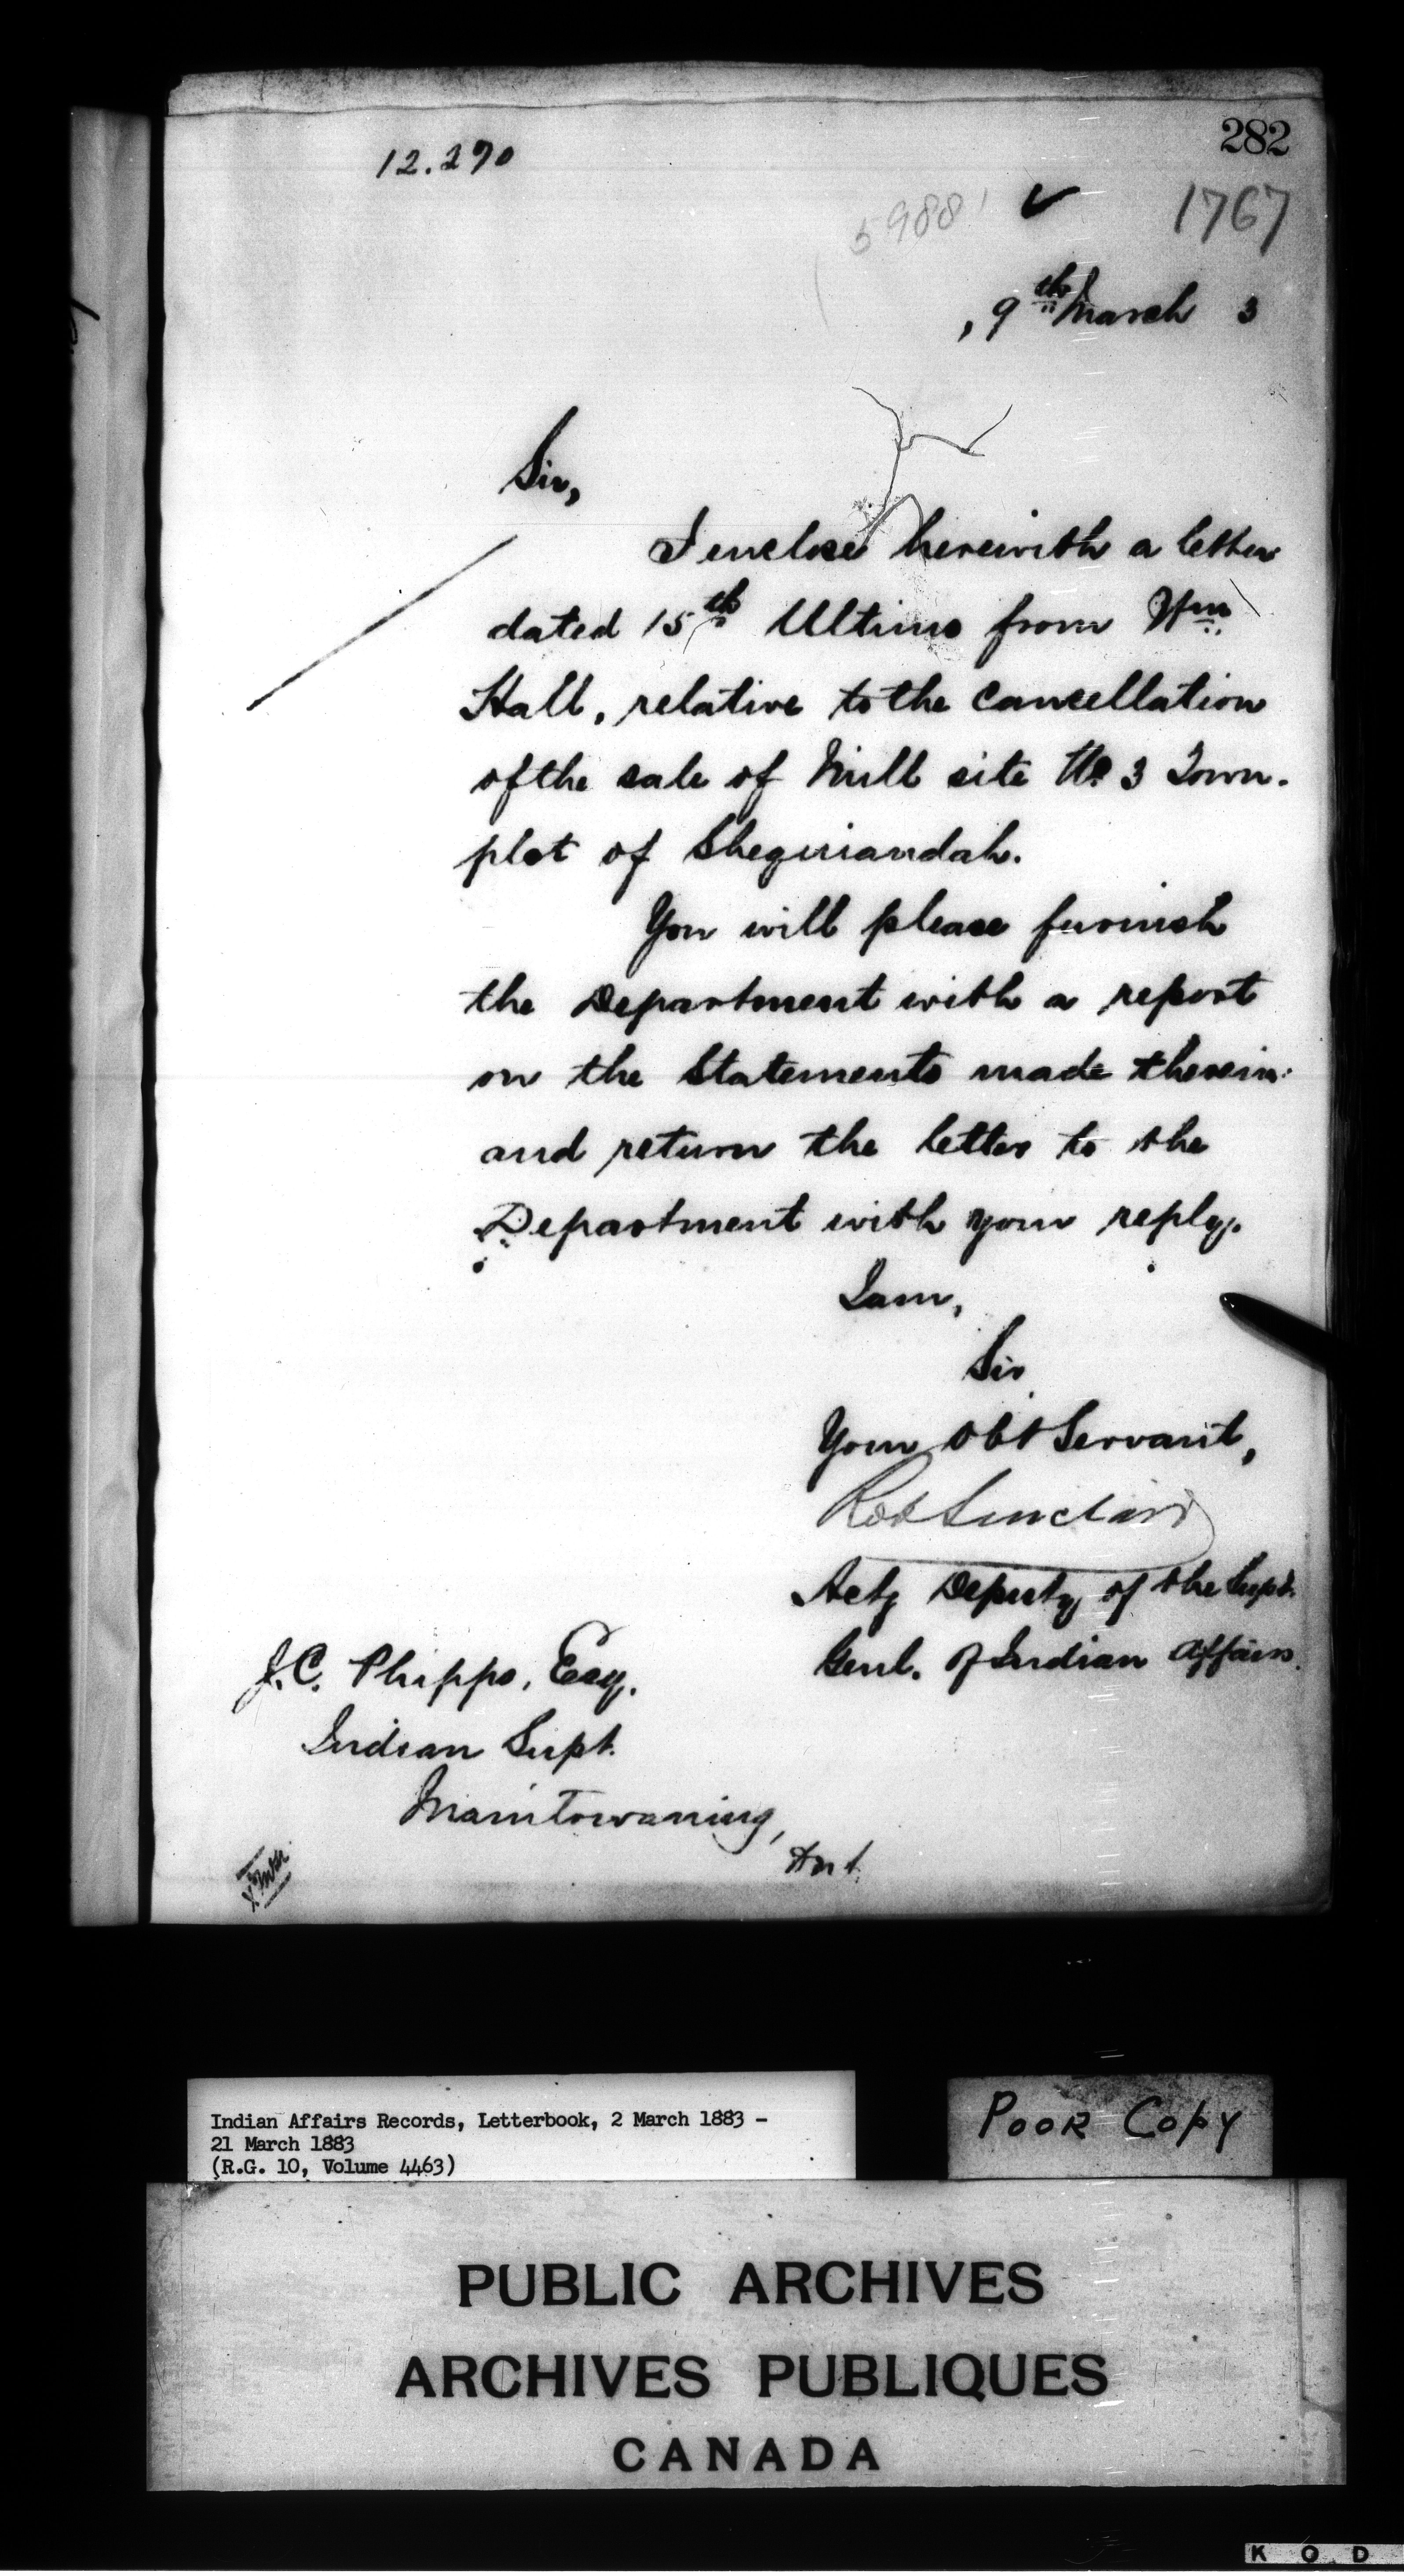 282
12.290
5988
1767
, 9th March 3
Sir,
I enclose herewith a letter
dated 15th Ultimo from Wm
Hall, relative to the cancellation
of the sale of Mill site No 3 Town-
plot of Sheguiandah.
You will please furnish
the Department with a report
on the Statements made therein
and return the letter to the
Department with your reply.
I am,
Sir
Your Obt Servant,
Rob Sinclair
Actg Deputy of the Supt.
Genl. of Indian Affairs.
J.C. Phipps, Esq.
Indian Supt.
Manitowaning,
Ont.
Indian Affairs Records, Letterbook, 2 March 1883 -
21 March 1883
(R.G. 10, Volume 4463)
POOR COPY
PUBLIC ARCHIVES
ARCHIVES PUBLIQUES
CANADA
K O D